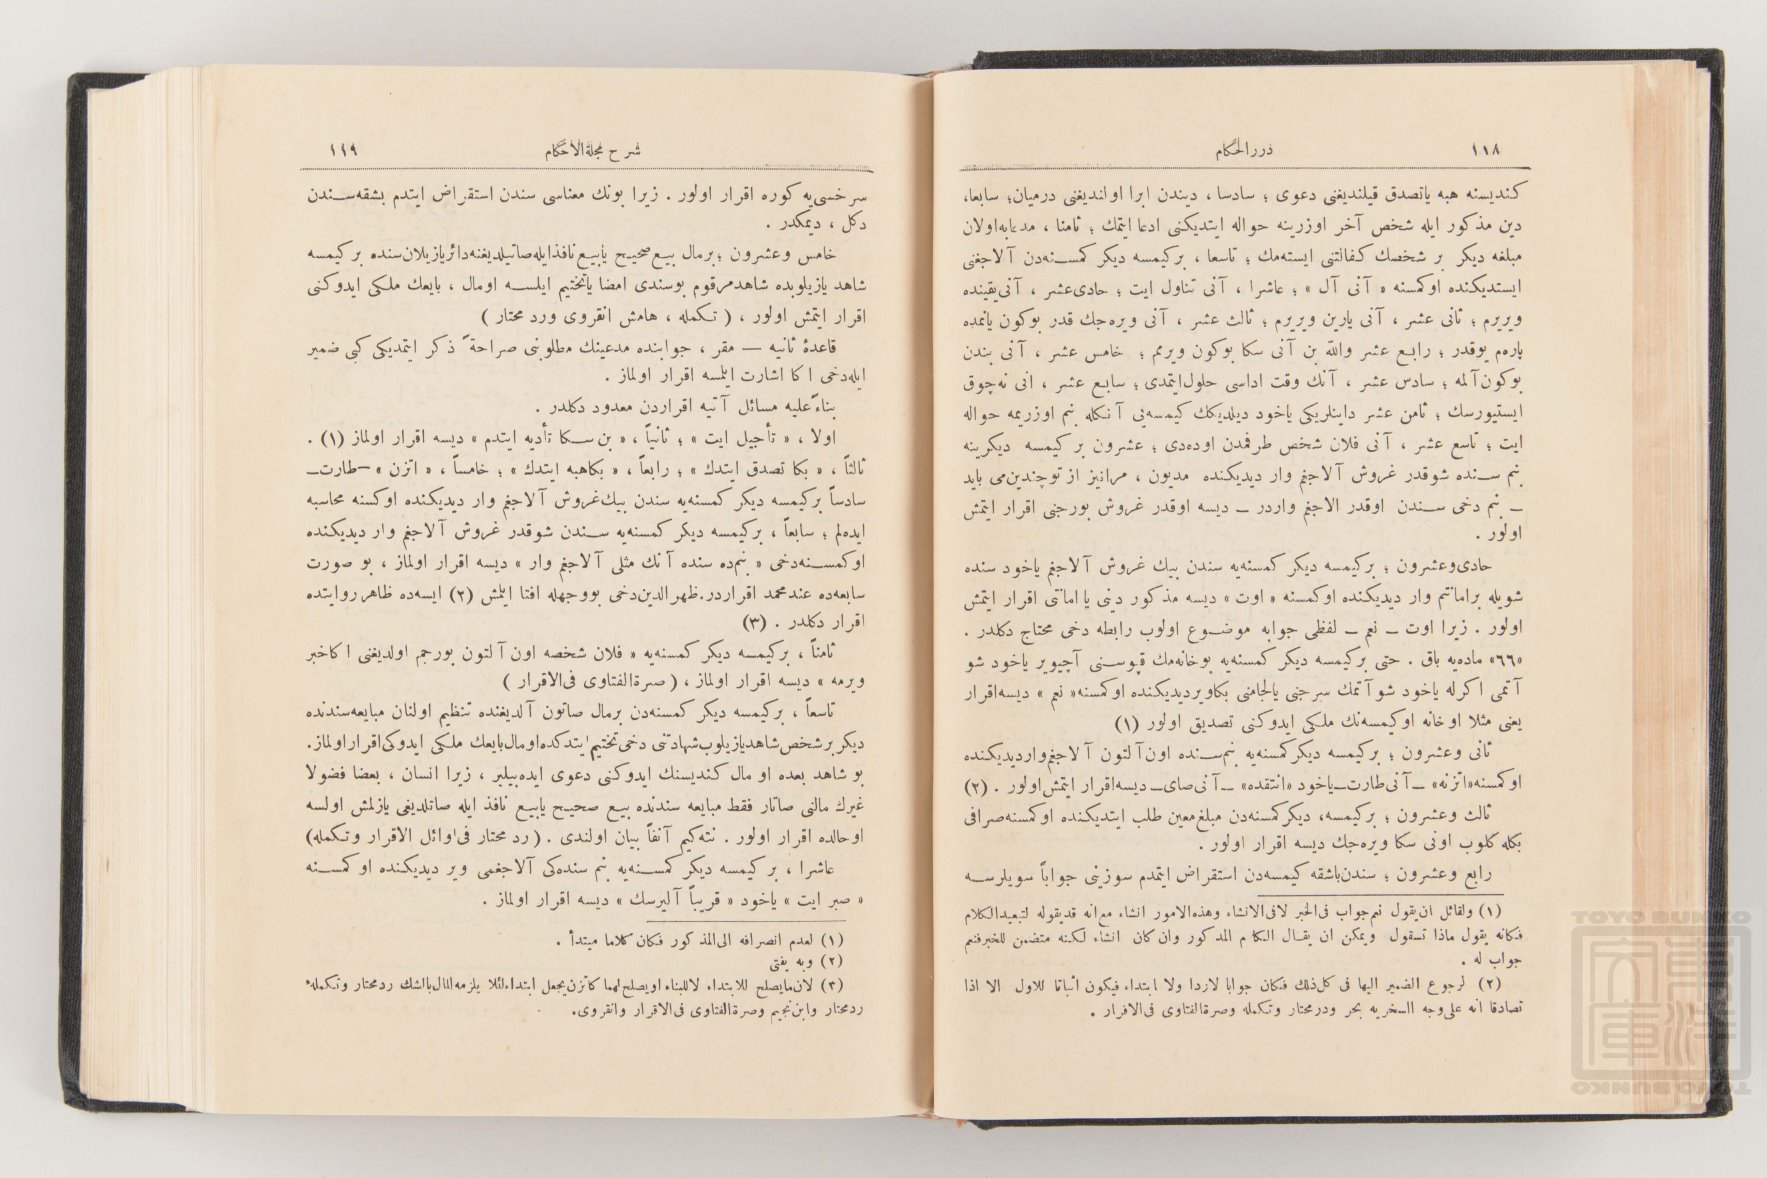 ١١٨
دررالحكام
كنديسنه هبه ياتصدق قيلنديغنى دعوى ؛ سادسا ، ديندن ابرا اولنديغنى درميان؛ سابعا،
دين مذكور ايله شخص آخر اوزرينه حواله ايتديكنى ادعا ايتمك ؛ ثامنا ، مدعابه اولان
مبلغه ديكر بر شخصك كفالتنى ايسته مك ؛ تاسعا ، بركيمسه ديكر كمسنه دن آلاجغنى
ايستديكنده اوكمسنه « آنى آل » ؛ عاشرا ، آنى تناول ايت ؛ حادى عشر ، آنى يقينده
ويريرم ؛ ثانى عشر ، آنى يارين ويريرم ؛ ثالث عشر ، آنى ويره جك قدر بوكون يانمده
پاره م يوقدر ؛ رابع عشر والله بن آنى سكا بوكون ويرمم ؛ خامس عشر ، آنى بندن
بوكون آلمه ؛ سادس عشر ، آنك وقت اداسى حلول ايتمدى ؛ سابع عشر ، انى نه چوق
ايستيورسك ؛ ثامن عشر داينلريكى ياخود ديلديكك كيمسه يى آنكله بنم اوزريمه حواله
ايت ؛ تاسع عشر ، آنى فلان شخص طرفمدن اوده دى ؛ عشرون بر كيمسه ديكرينه
بنم سنده شوقدر غروش آلاجغم وار ديديكنده مديون ، مرانيز از تو چندين مى بايد
ــ بنم دخى سندن اوقدر الاجغم واردر ــ ديسه اوقدر غروش بورجنى اقرار ايتمش
اولور .
حادى وعشرون ؛ بركيمسه ديكر كمسنه يه سندن بيك غروش آلاجغم ياخود سنده
شويله برامانتم وار ديديكنده اوكمسنه « اوت » ديسه مذكور دينى يا امانتى اقرار ايتمش
اولور . زيرا اوت ــ نعم ــ لفظى جوابه موضوع اولوب رابطه دخى محتاج دكلدر .
«٦٦» ماده يه باق . حتى بركيمسه ديكر كمسنه يه بوخانه مك قپوسنى آچيوير ياخود شو
آتمى اكرله ياخود شو آتمك سرجنى يالجامنى بكاوير ديديكنده اوكمسنه « نعم » ديسه اقرار
يعنى مثلا اوخانه اوكيمسه نك ملكى ايدوكنى تصديق اولور (١)
ثانى وعشرون ؛ بركيمسه ديكر كمسنه يه بنم سنده اون آلتون آلاجغم وار ديديكنده
اوكمسنه «اتزنه» ــ آنى طارت ــ ياخود «انتقده» ــ آنى صاى ــ ديسه اقرار ايتمش اولور . (٢)
ثالث وعشرون ؛ بركيمسه، ديكر كمسنه دن مبلغ معين طلب ايتديكنده اوكمسنه صرافى
بكله كلوب اونى سكا ويره جك ديسه اقرار اولور .
رابع وعشرون ؛ سندن باشقه كيمسه دن استقراض ايتمدم سوزينى جواباً سويلرسه
(١) ولقائل ان يقول نعم جواب فى الخبر لافى الانشاء وهذه الامور انشاء مع انه قديقوله لتبعيد الكلام
فكانه يقول ماذا تقول ويمكن ان يقال الكلام المذكور وان كان انشاء لكنه متضمن للخبر فنعم
جواب له .
(٢) لرجوع الضمير اليها فى كل ذلك فكان جوابا لاردا ولا ابتداء فيكون أثباتا للاول الا اذا
تصادقا انه على وجه السخريه بحر ودرمختار وتكمله وصرة الفتاوى فى الاقرار .
شرح مجلة الاحكام
١١٩
سرخسى يه كوره اقرار اولور . زيرا بونك معناسى سندن استقراض ايتدم بشقه سندن
دكل ، ديمكدر .
خامس وعشرون ؛ برمال بيع صحيح يابيع نافذ ايله صاتيلديغنه دائر يازيلان سنده بركيمسه
شاهد يازيلوبده شاهد مرقوم بوسندى امضا ياتختيم ايلسه اومال ، بايعك ملكى ايدوكنى
اقرار ايتمش اولور ، ( تكمله ، هامش انقروى ورد محتار )
قاعدۀ ثانيه — مقر ، جوابنده مدعينك مطلوبنى صراحةً ذكر ايتمديكى كبى ضمير
ايله دخى اكا اشارت ايلمسه اقرار اولماز .
بناءً عليه مسائل آتيه اقراردن معدود دكلدر .
اولا ، « تأجيل ايت » ؛ ثانياً ، « بن سكا تأديه ايتدم » ديسه اقرار اولماز (١) .
ثالثاً ، « بكا تصدق ايتدك » ؛ رابعاً ، « بكاهبه ايتدك » ؛ خامساً ، « اتزن » ــ طارت ــ
سادساً بركيمسه ديكر كمسنه يه سندن بيك غروش آلاجغم وار ديديكنده اوكسنه محاسبه
ايده لم ؛ سابعاً ، بركيمسه ديكر كمسنه يه سندن شوقدر غروش آلاجغم وار ديديكنده
اوكمسنه دخى « بنم ده سنده آنك مثلى آلاجغم وار » ديسه اقرار اولماز ، بو صورت
سابعه ده عند محمد اقراردر. ظهر الدين دخى بووجهله افتا ايلمش (٢) ايسه ده ظاهر روايتده
اقرار دكلدر . (٣)
ثامناً ، بركيمسه ديكر كمسنه يه « فلان شخصه اون آلتون بورجم اولديغنى اكاخبر
ويرمه » ديسه اقرار اولماز ، ( صرة الفتاوى فى الاقرار )
تاسعاً ، بركيمسه ديكر كمسنه دن برمال صاتون آلديغنده تنظيم اولنان مبايعه سندنده
ديكر بر شخص شاهد يازيلوب شهادتنى دخى تختيم ايتدكده اومال بايعك ملكى ايدوكى اقرار اولماز.
بو شاهد بعده او مال كنديسنك ايدوكنى دعوى ايده بيلير ، زيرا انسان ، بعضا فضولا
غيرك مالنى صاتار فقط مبايعه سندنده بيع صحيح يابيع نافذ ايله صاتلديغى يازلمش اولسه
اوحالده اقرار اولور . نته كيم آنفاً بيان اولندى . ( رد محتار فى اوائل الاقرار وتكمله)
عاشرا ، بر كيمسه ديكر كمسنه يه بنم سنده كى آلاجغمى وير ديديكنده اوكمسنه
« صبر ايت » ياخود « قريباً آليرسك » ديسه اقرار اولماز .
(١) لعدم انصرافه الى المذكور فكان كلاما مبتدأ .
(٢) وبه يفتى
(٣) لان مايصلح للابتداء لاللبناء اويصلح لهما كاتزن يجعل ابتداء لئلا يلزمه المال بالشك ردمحتار وتكمله
ردمحتار وابن نجيم وصرة الفتاوى فى الاقرار وانقروى.
TOYO BUNKO
TOYO BUNKO